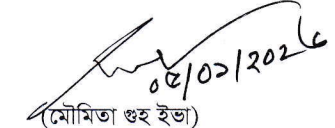 ০৫/০১/২০২৬
(মৌমিতা গুহ ইভা)